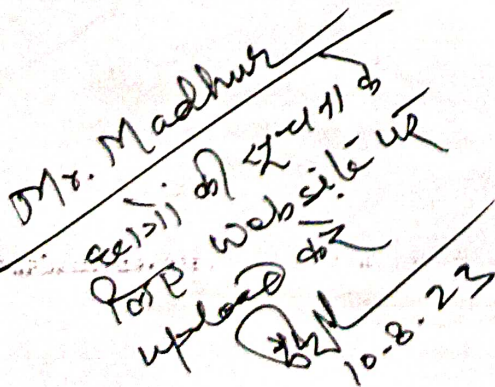 Mr. Madhur
छात्रों की सूचना के
लिए website पर
upload करें
10-8-23